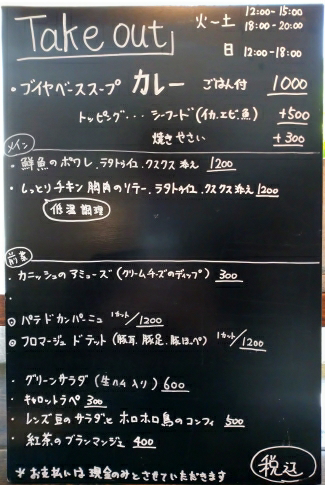 Take out
火ー土 12:00-15:00
18:00-20:00
日 12:00-18:00
・ブイヤベーススープ カレー ごはん付 1000
トッピング・・・シーフード(イカ、エビ、魚) +500
焼きやさい +300
メイン
・鮮魚のポワレ、ラタトゥイユ、クスクス添え 1200
・しっとりチキン胸肉のソテー、ラタトゥイユ、クスクス添え 1200
低温調理
前菜
・カニッシュのアミューズ(クリームチーズのディップ) 300
◎パテドカンパーニュ 1カット/1200
◎フロマージュドテット(豚耳、豚足、豚ほっぺ) 1カット/1200
・グリーンサラダ(生ハム入り) 600
・キャロットラペ 300
・レンズ豆のサラダとホロホロ鳥のコンフィ 500
・紅茶のブランマンジェ 400
税込
*お支払いは現金のみとさせていただきます